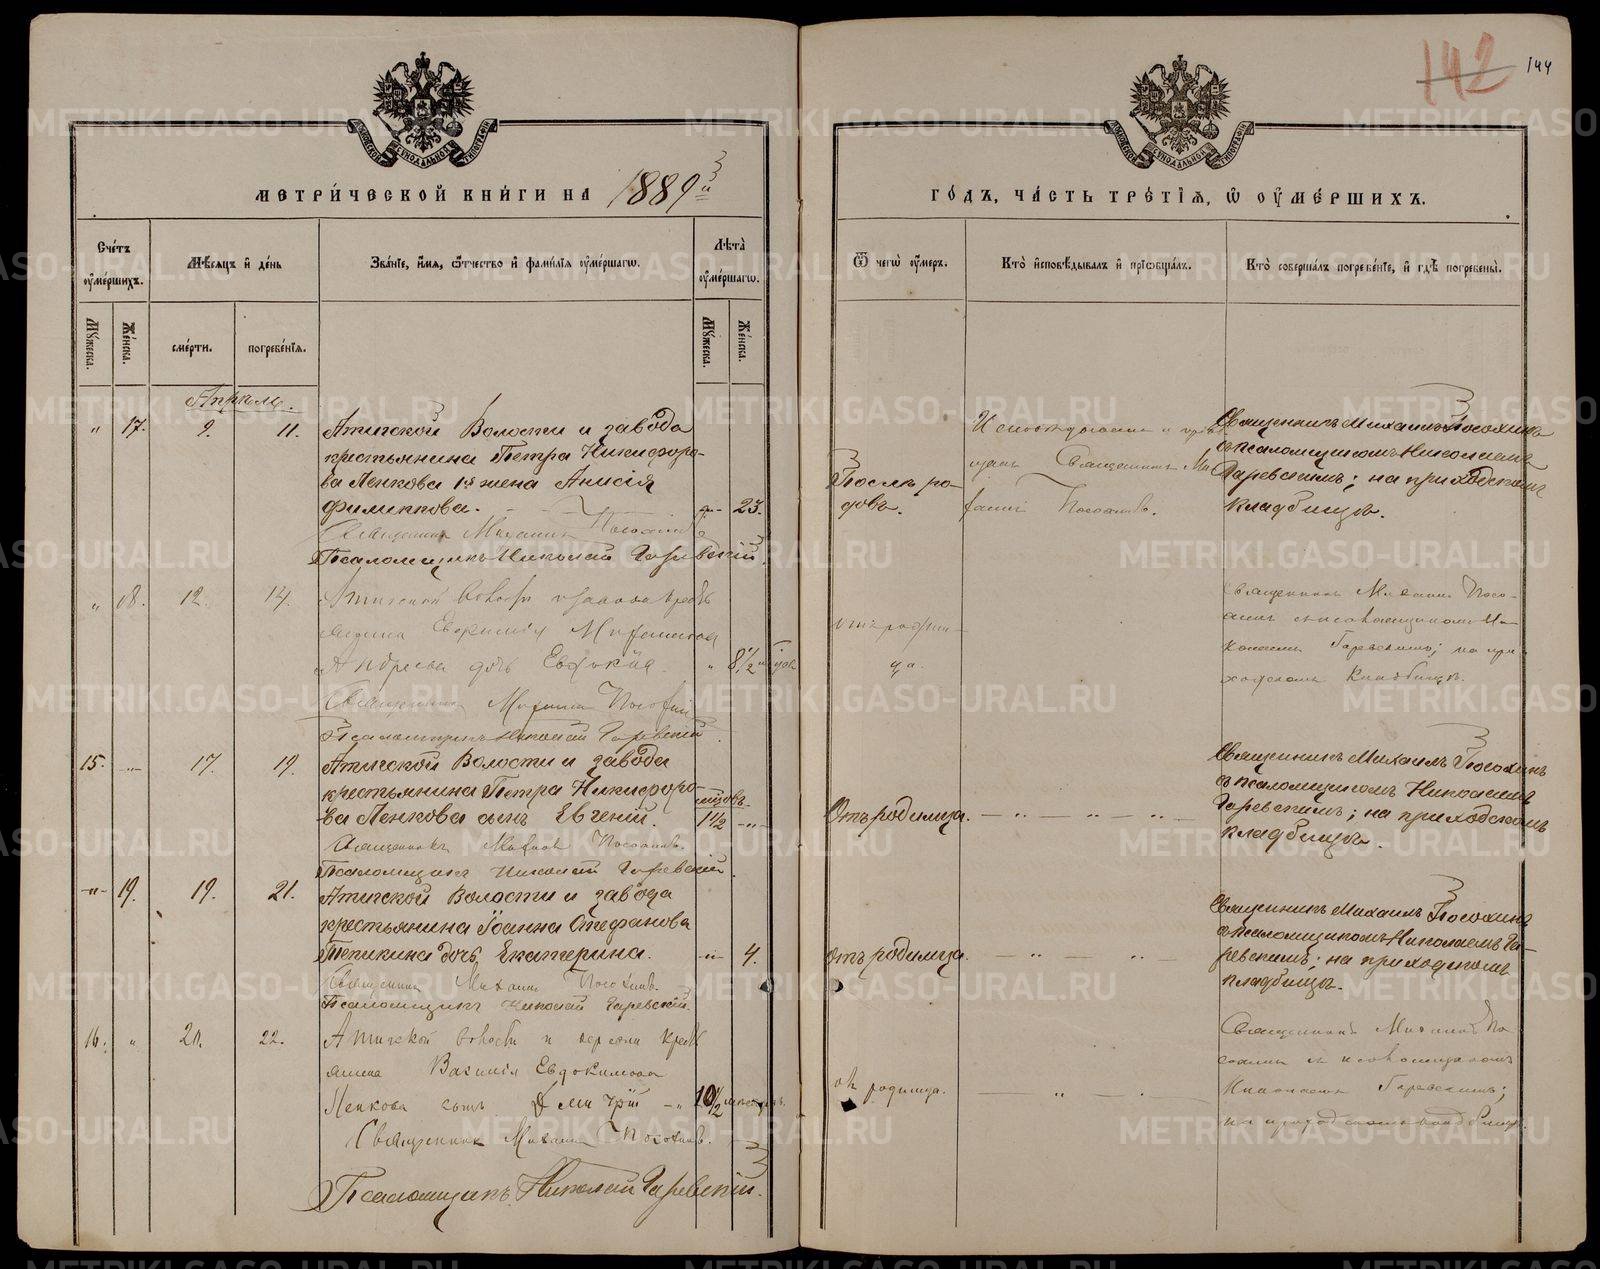 142 144
МЕТРИ́ЧЕСКОЙ КНИ́ГИ НА 1889й
ГО́ДЪ, ЧА́СТЬ ТРЕ́ТІЯ, Ѿ ОУ҆МЕ́РШИХЪ.
Сче́тъ оу҆ме́ршихъ.
Мѣ́сяцъ и҆ де́нь
Зва́ніе, и҆́мя, ѻ҆́тчество и҆ фами́лія оу҆ме́ршагѡ.
Лѣ́та оу҆ме́ршагѡ.
Ѿ чегѡ̀ оу҆́меръ.
Кто̀ и҆сповѣ́дывалъ и҆ пріѻбща́лъ.
Кто̀ соверша́лъ погребе́ніе, и҆ гдѣ̀ погребены̀.
Мꙋ́жеска.
Же́нска.
сме́рти.
погребе́нія.
Мꙋ́жеска.
Же́нска.
Апрѣль.
" 17. 9. 11. Атигской Волости и завода
крестьянина Петра Никифоро-
ва Пенкова 1я жена Анисія
Филиппова. 23.
Священникъ Михаилъ Посохинъ
Псаломщикъ Николай Гаревскій.
Послѣ ро-
довъ.
Исповѣдывалъ и
Священникъ Ми-
Посохинъ.
Священникъ Михаилъ Посохинъ
съ псаломщикомъ Николаемъ
Гаревскимъ; на приходскомъ
кладбищѣ.
" 18. 12. 14. Атигской волости и завода
Андреева дочь Евдокія. " 8 1/2
Священникъ Михаилъ Посохинъ
Псаломщикъ Николай Гаревскій.
Священникъ Михаилъ Посо-
хинъ съ псаломщикомъ Ни-
колаемъ Гаревскимъ; на при-
ходскомъ кладбищѣ.
15. 17. 19. Атигской Волости и завода
крестьянина Петра Никифоро-
ва Пенкова сынъ Евгеній. 1 1/2
Священникъ Михаилъ Посохинъ.
Псаломщикъ Николай Гаревскій.
Отъ родимца.
Священникъ Михаилъ Посохинъ
съ псаломщикомъ Николаемъ
Гаревскимъ; на приходскомъ
кладбищѣ.
19. 19. 21. Атигской Волости и завода
крестьянина Іоанна Стефанова
Пепикина дочь Екатерина. 4.
Священникъ Михаилъ Посохинъ.
Псаломщикъ Николай Гаревскій.
отъ родимца.
Священникъ Михаилъ Посохинъ
съ псаломщикомъ Николаемъ Га-
ревскимъ; на приходскомъ
кладбищѣ.
16. " 20. 22. Атигской волости и
Василія Евдокимова
Пенкова сынъ Дмитрій 10 1/2
Священникъ Михаилъ Посохинъ.
Псаломщикъ Николай Гаревскій.
отъ родимца.
Священникъ Михаилъ По-
сохинъ съ псаломщикомъ
Николаемъ Гаревскимъ;
на приходскомъ кладбищѣ.
METRIKI.GASO-URAL.RU